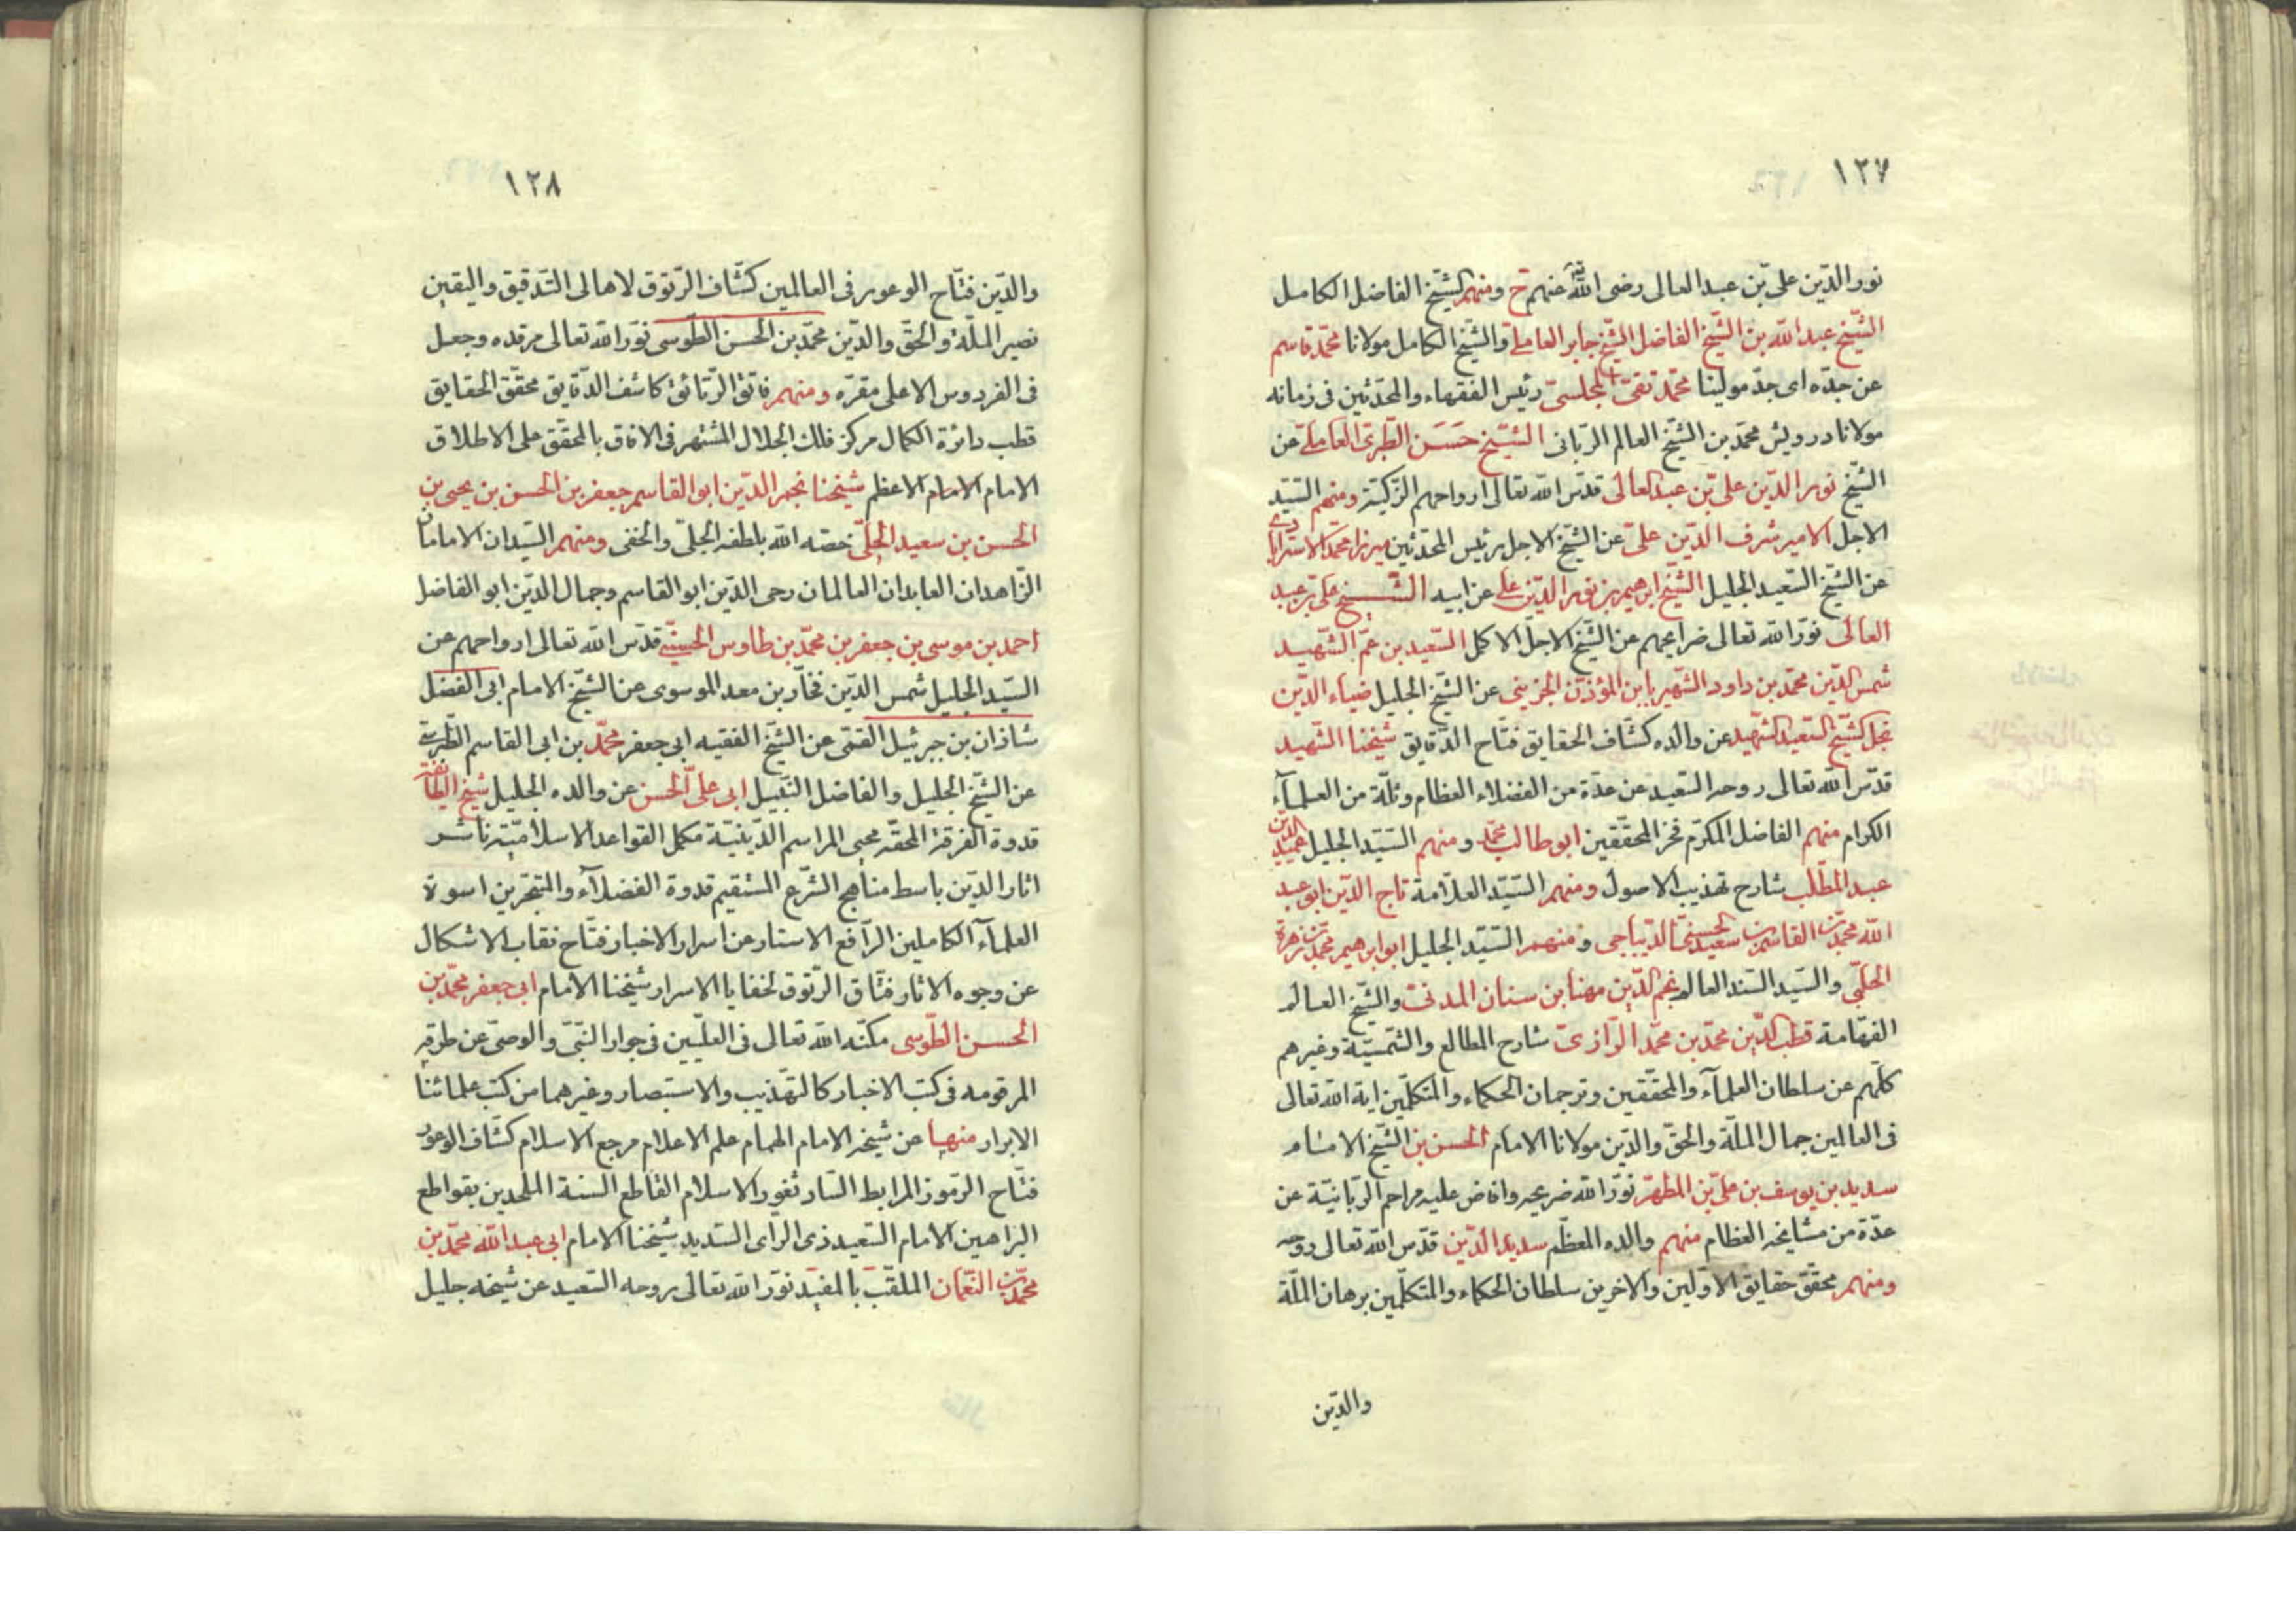 ١٢٧
نور الدّين علي بن عبد العالى رضى الله عنهم ح ومنهم الشّيخ الفاضل الكامل
الشّيخ عبد الله بن الشّيخ الفاضل الشّيخ جابر العاملے والشّيخ الكامل مولانا محمّد قاسم
عن جدّه اى جدّ مولينا محمّد تقىّ المجلسىّ رئيس الفقهاء والمحدّثين فى زمانه
مولانا درويش محمّد بن الشّيخ العالم الرّبانى الشّيخ حَسَن النّطنزى العاملے عن
الشّيخ نور الدّين علىّ بن عبد العالى قدّس الله تعالى ارواحهم الزّكيّة ومنهم السّيّد
الاجل الامير شرف الدّين علىّ عن الشّيخ الاجل رئيس المحدّثين ميرزا محمّد الاسترابادے
عن الشّيخ السّعيد الجليل الشّيخ ابرهيم بن نور الدّين على عن ابيه الشّيخ على بن عبد
العالى نوّر الله تعالى ضرايحهم عن الشّيخ الاجلّ الاكمل السّعيد بن عمّ الشّهيد
شمس الدّين محمّد بن داود الشّهير بابن المؤذّن الجزينى عن الشّيخ الجليل ضياء الدّين
نجل الشّيخ السّعيد الشّهيد عن والده كشّاف الحقايق فتّاح الدّقايق شيخنا الشّهيد
قدّس الله تعالى روحه السّعيد عن عدّة من الفضلاء العظام وثلّة من العلمآء
الكرام منهم الفاضل المكرّم فخر المحقّقين ابو طالب محمّد ومنهم السّيّد الجليل عميد الدّين
عبد المطّلب شارح تهذيب الاصول ومنهم السّيّد العلّامة تاج الدّين ابو عبد
الله محمّد بن القاسم بن سعيد الحسنىّ الدّيباجى ومنهم السّيّد الجليل ابو ابرهيم محمّد بن زهرة
الحلبّى والسّيد السّند العالم نجم الدّين مهنا بن سنان المدنى والشّيخ العالم
الفهّامة قطب الدّين محمّد بن محمّد الرّازىّ شارح المطالع والشّمسيّة وغيرهم
كلّهم عن سلطان العلمآء والمحقّقين وترجمان الحكماء والمتكلّمين اية الله تعالى
فى العالمين جمال الملّة والحقّ والدّين مولانا الامام الحسن بن الشّيخ الامام
سديد بن يوسف بن علىّ بن المطهّر نوّر الله ضريحه وافاض عليه مراحم الرّبانيّة عن
عدّة من مشايخه العظام منهم والده المعظّم سديد الدّين قدّس الله تعالى روحه
ومنهم محقّق حقايق الاوّلين والاخرين سلطان الحكماء والمتكلّمين برهان الملّة
والدّين
١٢٨
والدّين فتّاح الوعور فى العالمين كشّاف الرّتوق لاهالى التّدقيق واليقين
نصير الملّة والحقّ والدّين محمّد بن الحسن الطّوسى نوّر الله تعالى مرقده وجعل
فى الفردوس الاعلى مقرّه ومنهم فاتق الرّتائق كاشف الدّقايق محقّق الحقايق
قطب دائرة الكمال مركز فلك الجلال المشتهر فى الافاق بالمحقّق على الاطلاق
الامام الامام الاعظم شيخنا نجم الدّين ابو القاسم جعفر بن الحسن بن يحيى بن
الحسن بن سعيد الحلّى خصّه الله بلطفه الجلىّ والخفى ومنهم السّيدان الامامان
الزّاهدان العابدان العالمان رضى الدّين ابو القاسم وجمال الدّين ابو الفاضل
احمد بن موسى بن جعفر بن محمّد بن طاوس الحسنىّ قدّس الله تعالى ارواحهم عن
السّيد الجليل شمس الدّين فخّار بن معد الموسوى عن الشّيخ الامام ابى الفضل
شاذان بن جبرئيل القمّى عن الشّيخ الفقيه ابى جعفر محمّد بن ابى القاسم الطّبرى
عن الشّيخ الجليل والفاضل النّبيل ابى علىّ الحسن عن والده الجليل شيخ الطّائفة
قدوة الفرقة المحقّه محيى المراسم الدّينيّة مكمل القواعد الاسلاميّة ناشر
اثار الدّين باسط مناهج الشّرع المستقيم قدوة الفضلآء والمتبحّرين اسوة
العلمآء الكاملين الرّافع الاستار عن اسرار الاخبار فتّاح نقاب الاشكال
عن وجوه الاثار فتّاق الرّتوق لخفايا الاسرار شيخنا الامام ابى جعفر محمّد بن
الحسن الطّوسى مكّنه الله تعالى فى العلّيين فى جوار النّبىّ والوصىّ عن طرقه
المرقومه فى كتب الاخبار كالتّهذيب والاستبصار وغيرهما من كتب علمائنا
الابرار منها عن شيخه الامام الهمام علم الاعلام مرجع الاسلام كشّاف الوعور
فتّاح الرّموز المرابط السّاد ثغور الاسلام القاطع السنة الملحدين بقواطع
البراهين الامام السّعيد ذى الراى السّديد شيخنا الامام ابى عبد الله محمّد بن
محمّد بن النّعمان الملقّب بالمفيد نوّر الله تعالى روحه السّعيد عن شيخه جليل